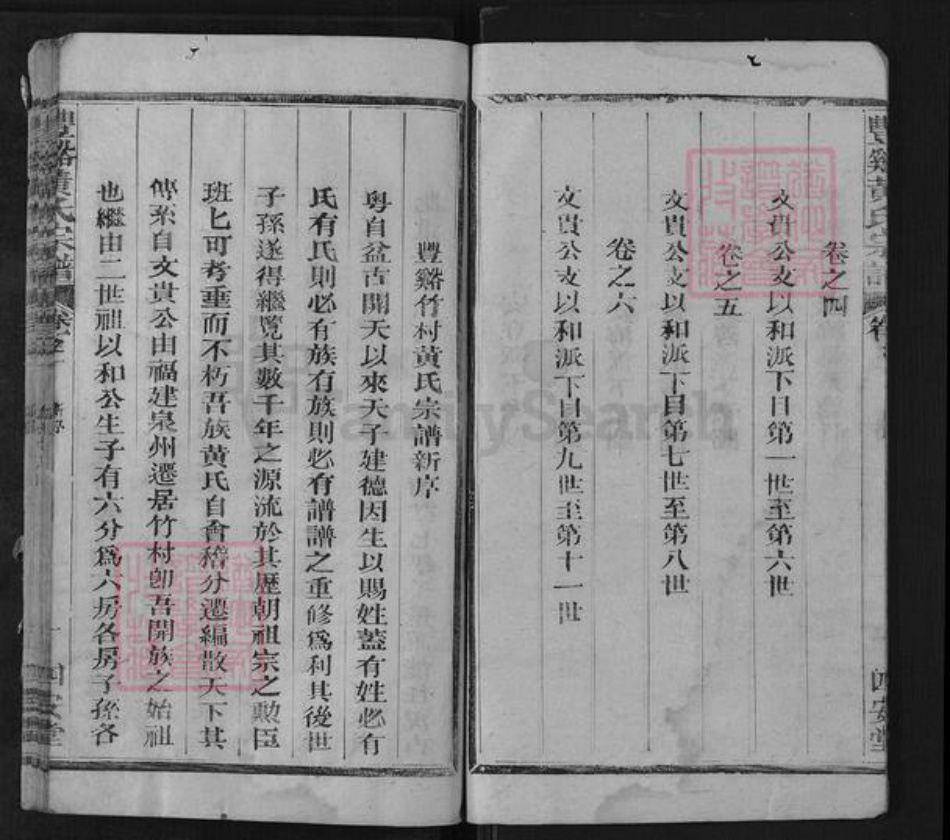 豐谿黃氏宗譜
卷之四
文貴公支以和派下自第一世至第六世
卷之五
文貴公支以和派下自第七世至第八世
卷之六
文貴公支以和派下自第九世至第十一世
四安堂
豐谿竹村黃氏宗譜新序
粵自盆古開天以來天子建德因生以賜姓蓋有姓必有
氏有氏則必有族有族則必有譜譜之重修爲利其後世
子孫遂得繼覽其數千年之源流於其歷朝祖宗之勲臣
班匕可考垂而不朽吾族黃氏自會稽分遷編散天下其
傳系自文貴公由福建泉州遷居竹村卽吾開族之始祖
也繼由二世祖以和公生子有六分爲六房各房子孫各
豐谿黃氏宗譜
四安堂
FamilySearch